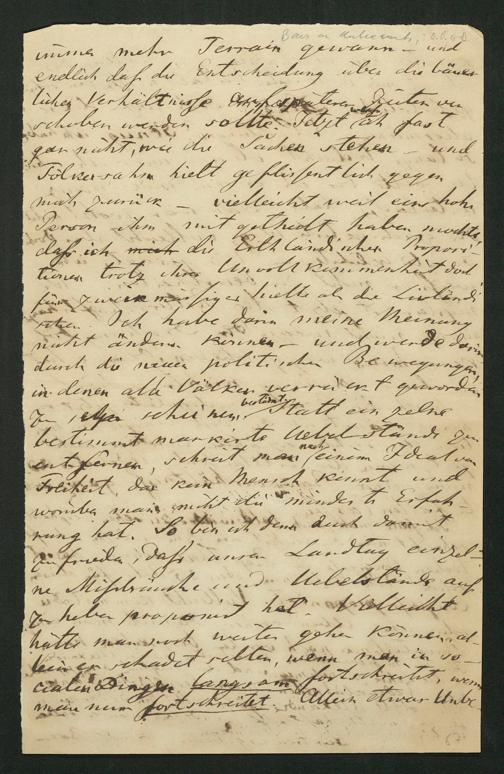 immer mehr Terrain gewann – und
endlich daß die Entscheidung über die bäuer-
lichen Verhältnisse späteren Zeiten ver
schoben werden sollte. Jetzt ich fast
gar nicht, wie die Sachen stehen – und
Fölkersahm hielt geflissentlich gegen
mich zurück – vielleicht weil eine hohe
Person ihm mitgetheilt haben mochte,
daß ich die Esthländischen Proposi
tionen trotz ihrer Unvollkommenheit doch
für zweckmässiger hielte als die Livländi
schen. Ich habe darin meine Meinung
nicht ändern können – und werde darin
durch die neuen politischen Bewegungen,
in denen alle Völker verrückt geworden
zu seyn scheinen, bestärkt. Statt einzelne
bestimmt markirte Uebelstände zu
entfernen, schreit man nach einem Ideal von
Freiheit das kein Mensch kennt und
worüber man nicht die mindeste Erfah-
rung hat. So bin ich denn auch damit
zufrieden, daß unser Landtag einzel-
ne Misbräuche und Uebelstände auf
zu heben proponirt hat. Vielleicht
hätte man noch weiter gehen können, al-
lein es schadet selten, wenn man in so-
cialen Dingen langsam fortschreitet, wenn
man nur fortschreitet. Allein etwas Unbe-